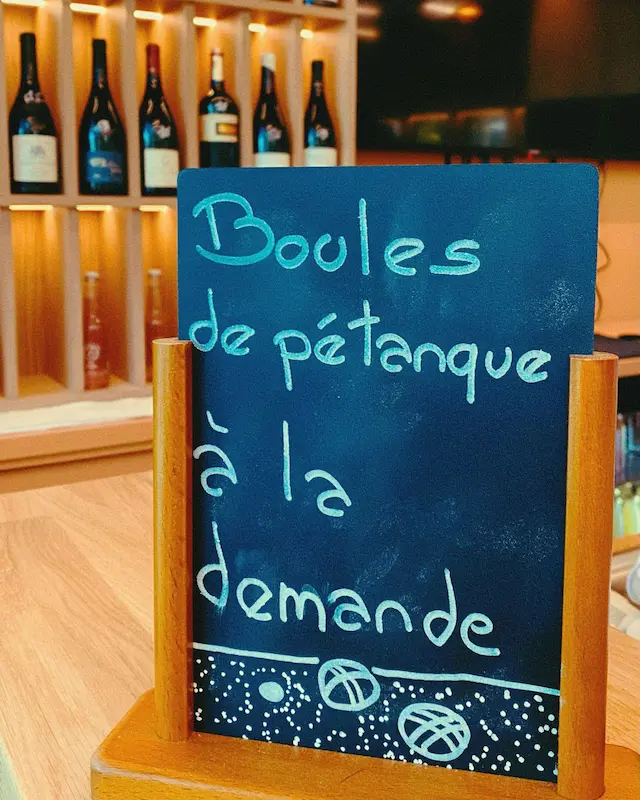 Boules
de pétanque
à la
demande